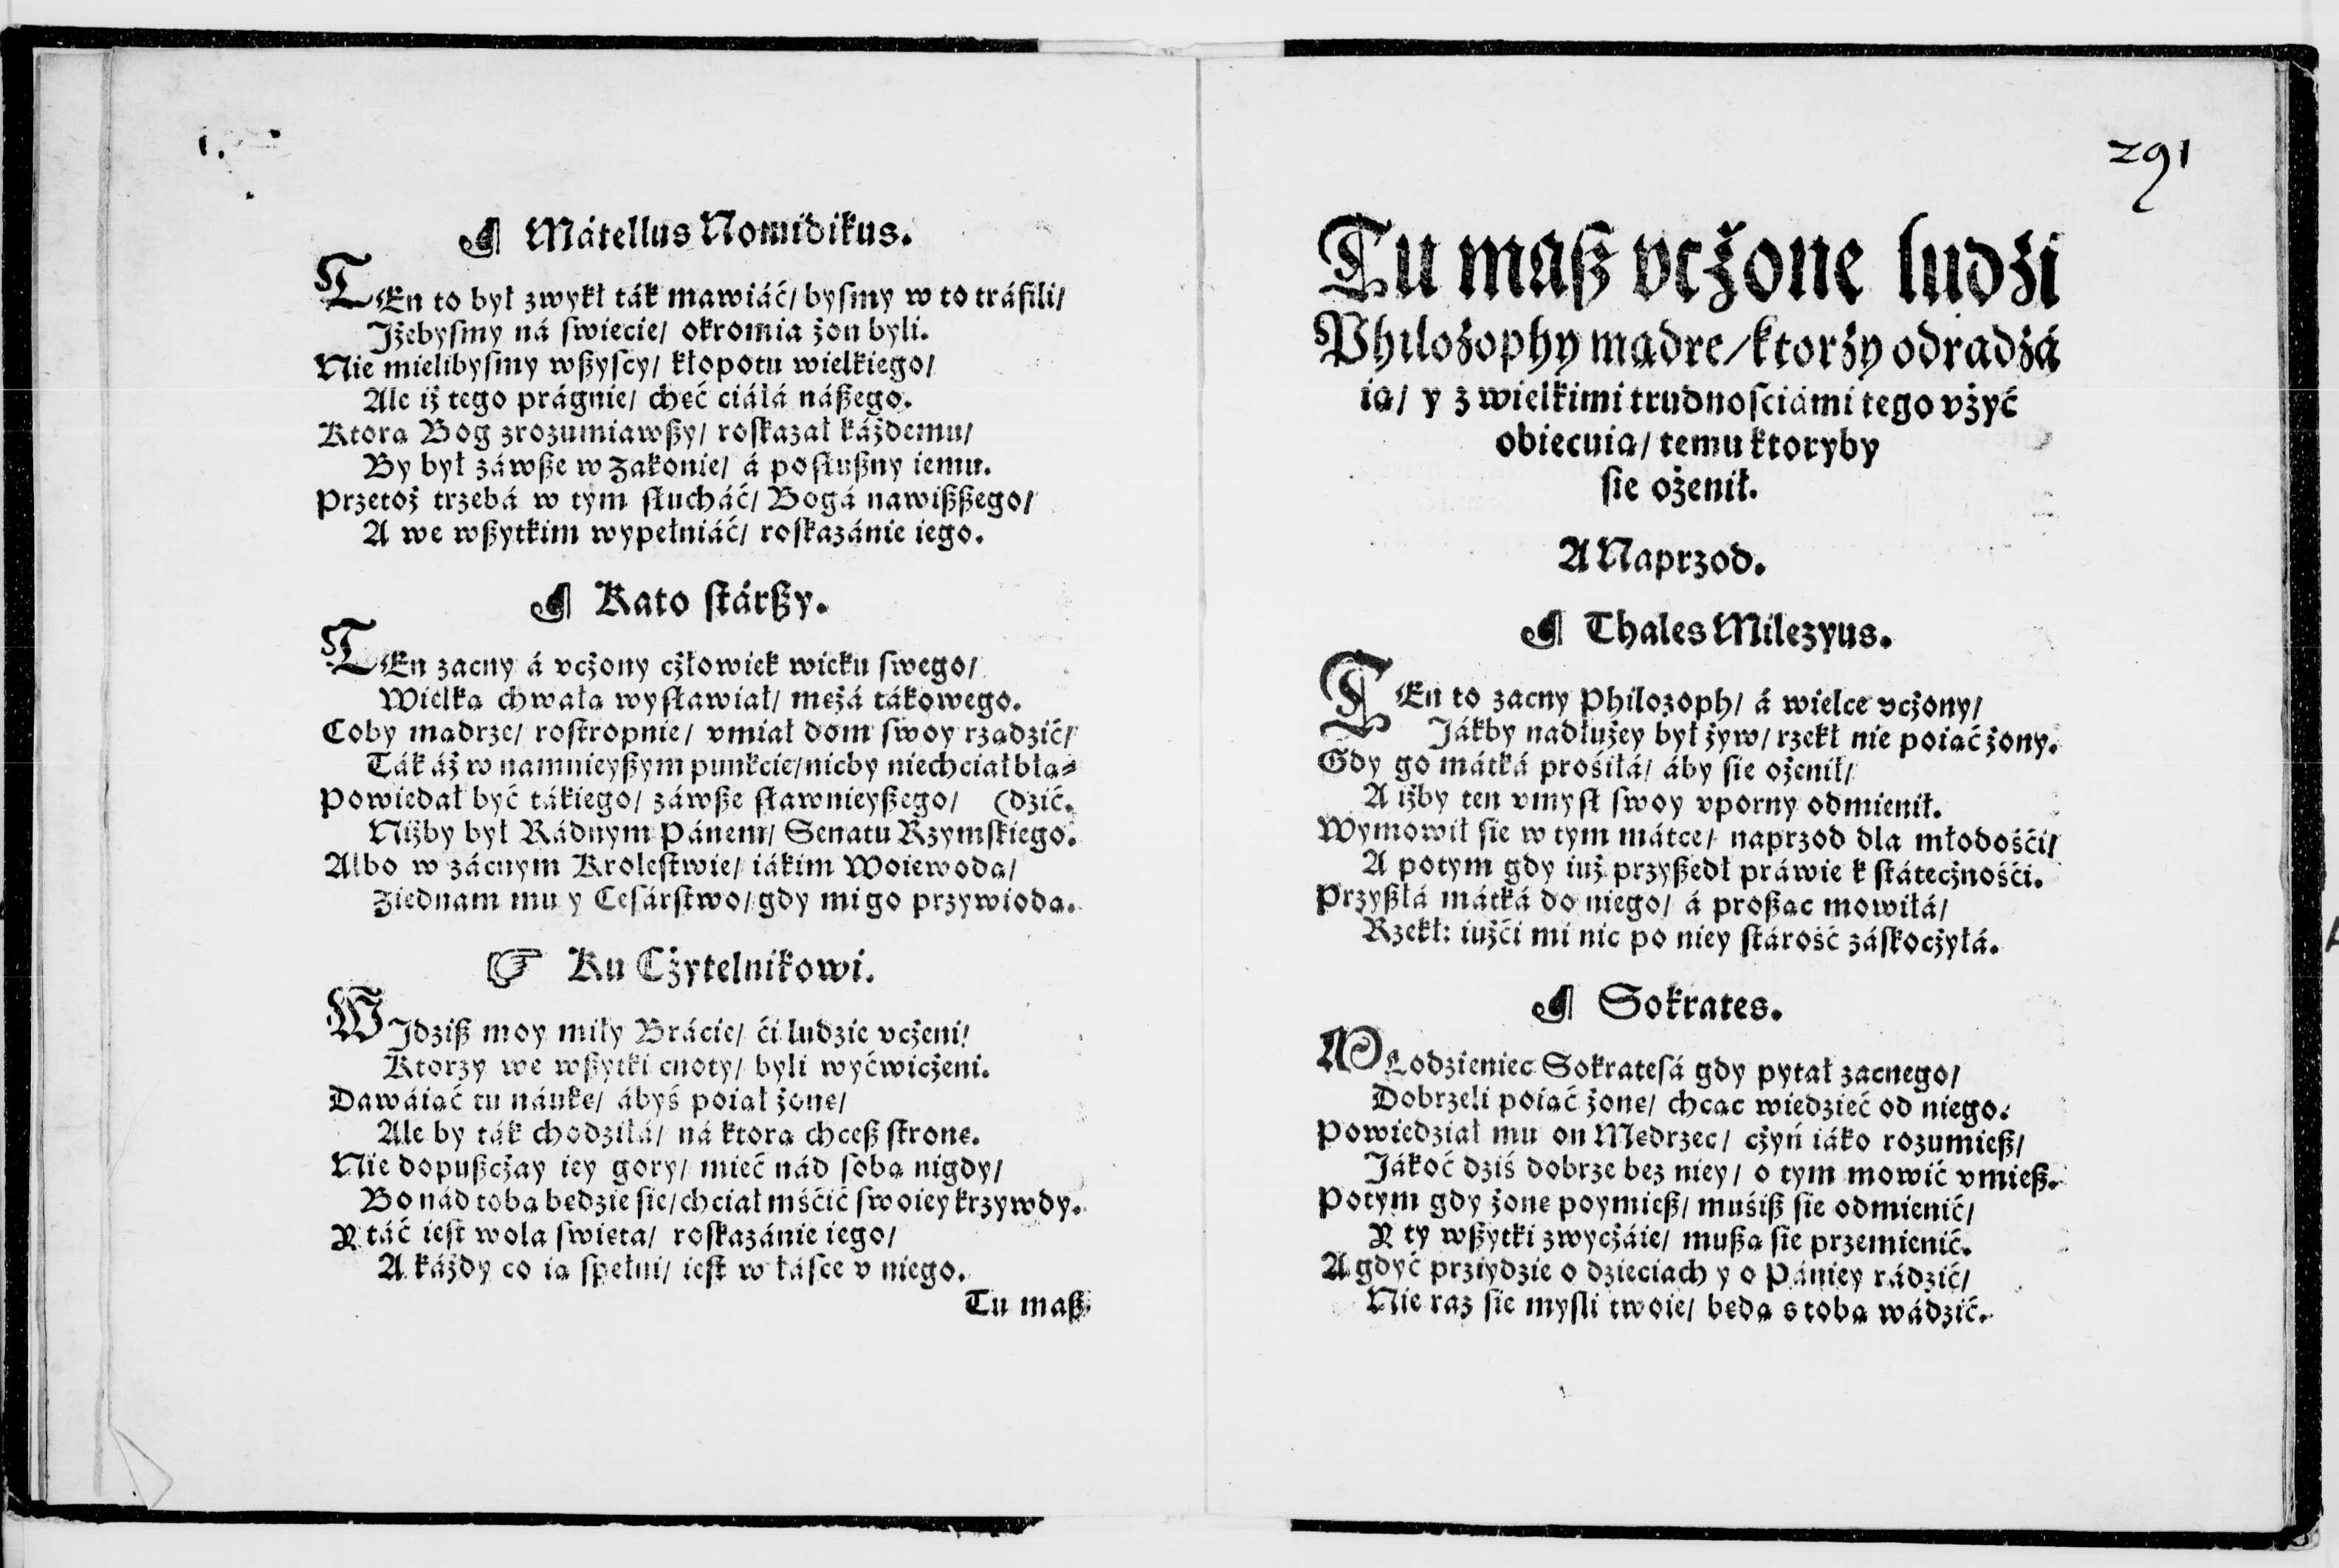 ¶ Mátellus Nomidikus.
TEn to był zwykł ták mawiáć/ bysmy w to tráfili/
Iżebysmy ná swiecie/ okromia żon byli.
Nie mielibysmy wßyscy/ kłopotu wielkiego/
Ale iż tego prágnie/ chęć ciáłá náßego.
Ktorą Bog zrozumiawßy/ roskazał káżdemu/
By był záwße w Zakonie/ á posłußny iemu.
Przetoż trzebá w tym słucháć/ Bogá nawißßego/
A we wßytkim wypełniáć/ roskazánie iego.
¶ Kato stárßy.
TEn zacny á vcżony cżłowiek wieku swego/
Wielką chwałą wysławiał/ mężá tákowego.
Coby mądrze/ rostropnie/ vmiał dom swoy rządzić/
Ták áż w namnieyßym punkcie/ nicby niechciał błą-
Powiedał być tákiego/ záwße sławnieyßego/ (dzić.
Niżby był Rádnym Pánem/ Senatu Rzymskiego.
Albo w zácnym Krolestwie/ iákim Woiewodą/
Ziednam mu y Cesárstwo/ gdy mi go przywiodą.
☞ Ku Cżytelnikowi.
WIdziß moy miły Brácie/ ći ludzie vcżeni/
Ktorzy we wßytki cnoty/ byli wyćwicżeni.
Dawáiąć tu náukę/ ábyś poiął żonę/
Ale by ták chodziłá/ ná ktorą chceß stronę.
Nie dopußcżay iey gory/ mieć nád sobą nigdy/
Bo nád tobą będzie się/ chciał mśćić swoiey krzywdy.
Y táć iest wola swięta/ roskazánie iego/
A káżdy co ią spełni/ iest w łásce v niego.
Tu maß
291
Tu maß vcżone ludźi
Philozophy mądre/ ktorzy odradzá
ią/ y z wielkimi trudnosciámi tego vżyć
obiecuią/ temu ktoryby
sie ożenił.
A Naprzod.
¶ Thales Milezyus.
TEn to zacny Philozoph/ á wielce vcżony/
Iákby nadłużey był żyw/ rzekł nie poiąć żony.
Gdy go mátká prośiłá/ áby sie ożenił/
A iżby ten vmysł swoy vporny odmienił.
Wymowił sie w tym mátce/ naprzod dla młodośći/
A potym gdy iuż przyßedł práwie k státecżnośći.
Przyßłá mátká do niego/ á proßąc mowiłá/
Rzekł: iużći mi nic po niey stárość záskocżyłá.
¶ Sokrates.
MŁodzieniec Sokratesá gdy pytał zacnego/
Dobrzeli poiąć żonę/ chcąc wiedzieć od niego.
Powiedział mu on Mędrzec/ cżyń iáko rozumieß/
Iákoć dziś dobrze bez niey/ o tym mowić vmieß.
Potym gdy żonę poymieß/ muśiß się odmienić/
Y ty wßytki zwycżáie/ mußą sie przemienić.
A gdyć prziydzie o dzieciach y o Pániey rádzić/
Nie raz sie mysli twoie/ będą s tobą wádzić.